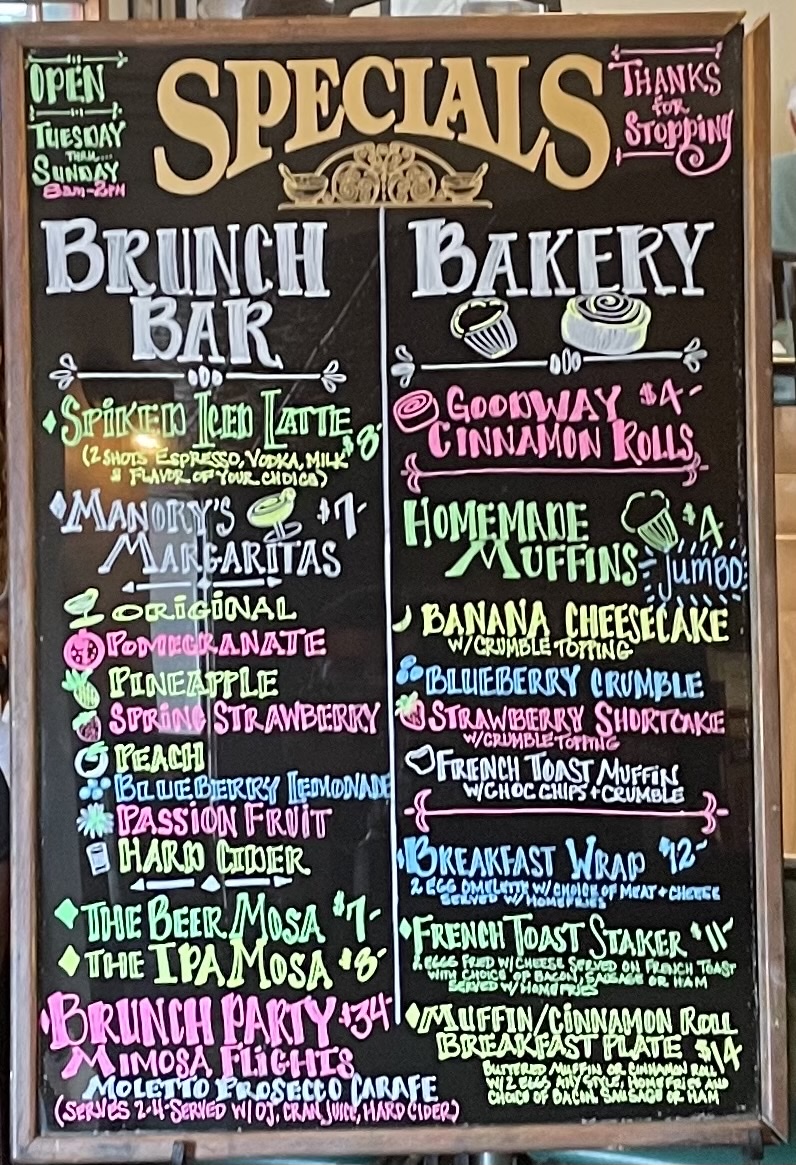 OPEN
TUESDAY
THRU...
SUNDAY
8am-2PM
SPECIALS
THANKS
for
STOPPING
BRUNCH
BAR
SPIKED ICED LATTE $8-
(2 SHOTS ESPRESSO, VODKA, MILK
& FLAVOR OF YOUR CHOICE)
MANORY'S $7-
MARGARITAS
ORIGINAL
POMEGRANATE
PINEAPPLE
SPRING STRAWBERRY
PEACH
BLUEBERRY LEMONADE
PASSION FRUIT
HARD CIDER
THE BEER MOSA $7-
THE IPA MOSA $8-
BRUNCH PARTY $34-
MIMOSA FLIGHTS
MOLETTO PROSECCO CARAFE
(SERVES 2-4-SERVED W/ OJ, CRAN JUICE, HARD CIDER)
BAKERY
GOODWAY $4-
CINNAMON ROLLS
HOMEMADE $4
MUFFINS JUMBO
BANANA CHEESECAKE
W/CRUMBLE TOPPING
BLUEBERRY CRUMBLE
STRAWBERRY SHORTCAKE
W/CRUMBLE TOPPING
FRENCH TOAST MUFFIN
W/CHOC CHIPS + CRUMBLE
BREAKFAST WRAP $12-
2 EGG OMELETTE W/ CHOICE OF MEAT + CHEESE
SERVED W/ HOMEFRIES
FRENCH TOAST STAKER $11-
2 EGGS FRIED W/ CHEESE SERVED ON FRENCH TOAST
WITH CHOICE OF BACON, SAUSAGE OR HAM
SERVED W/ HOMEFRIES
MUFFIN/CINNAMON ROLL
BREAKFAST PLATE $14
BUTTERED MUFFIN OR CINNAMON ROLL
W/ 2 EGGS ANY STYLE, HOMEFRIES AND
CHOICE OF BACON, SAUSAGE OR HAM